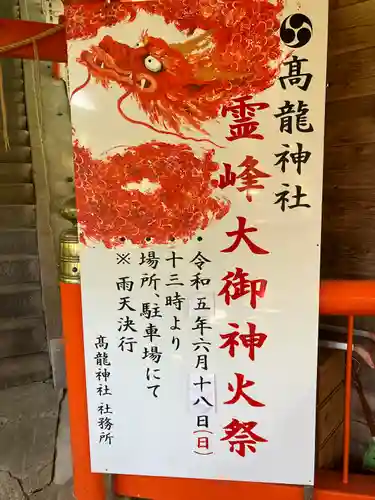 髙龍神社
霊峰大御神火祭
令和五年六月十八日(日)
十三時より
場所、駐車場にて
※ 雨天決行
髙龍神社 社務所